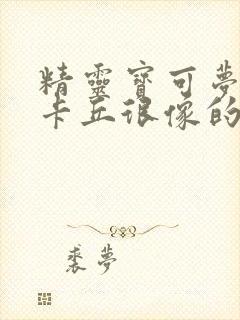 精靈寶可夢
卡丘很像的
裘夢